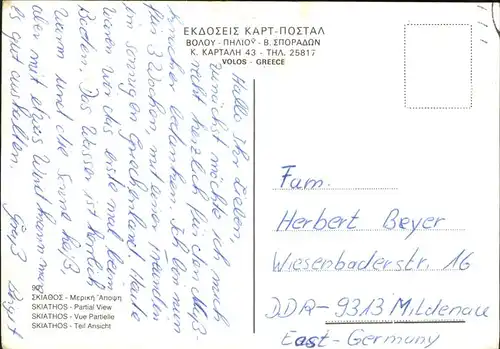 ΕΚΔΟΣΕΙΣ ΚΑΡΤ-ΠΟΣΤΑΛ
ΒΟΛΟΥ - ΠΗΛΙΟΥ - Β. ΣΠΟΡΑΔΩΝ
Κ. ΚΑΡΤΑΛΗ 43 - ΤΗΛ. 25817
VOLOS - GREECE
Hallo Ihr Lieben,
zunächst möchte ich mich
recht herzlich für den Muß-
kracher bedanken. Ich bin nun
für 3 Wochen, mit einer Freundin
im sonnigen Griechenland. Heute
waren wir das erste mal beim
Baden. Das Wasser ist herrlich
warm und die Sonne heiß,
aber mit etwas Wind kann man
es gut aushalten. Gruß Birgit
Fam.
Herbert Beyer
Wiesenbaderstr. 16
DDR-9313 Mildenau
East-Germany
96
ΣΚΙΑΘΟΣ - Μερική Άποψη
SKIATHOS - Partial View
SKIATHOS - Vue Partielle
SKIATHOS - Teil Ansicht